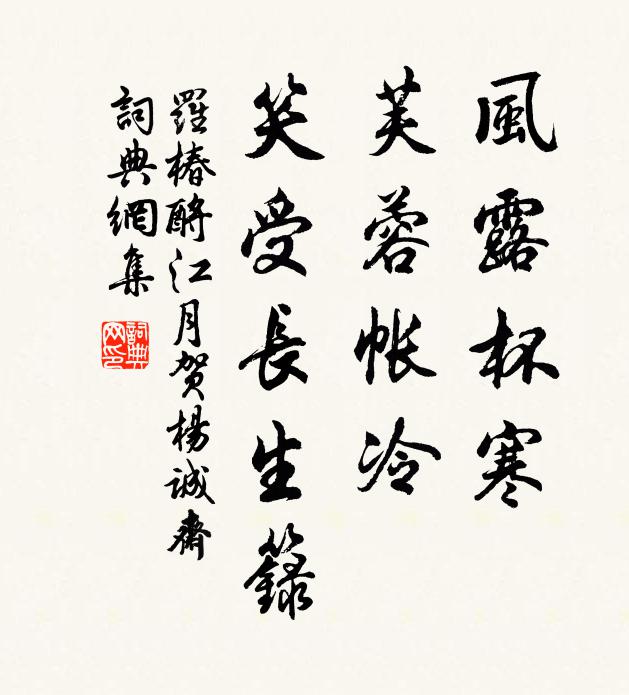 風露杯寒
芙蓉帳冷
笑受長生籙
羅椿酹江月賀楊誠齋
詞典網集
詞典
网印